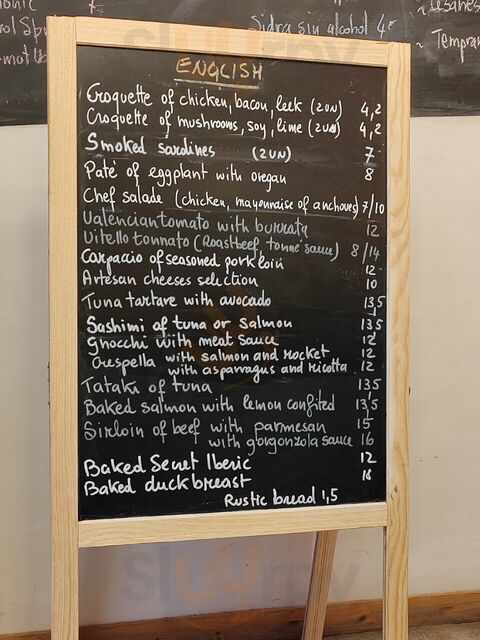 Sidra sin alcohol 4€
ENGLISH
Croquette of chicken, bacon, leek (2UN) 4,2
Croquette of mushrooms, soy, lime (2UN) 4,2
Smoked sardines (2UN) 7
Paté of eggplant with oregan 8
Chef salade (chicken, mayonnaise of anchoves) 7/10
Valencian tomato with burrata 12
Vitello tonnato (Roastbeef, tonné sauce) 8/14
Carpacio of seasoned pork loin 12
Artesan cheeses selection 10
Tuna tartare with avocado 13,5
Sashimi of tuna or salmon 13,5
Gnocchi with meat sauce 12
Crespella with salmon and rocket 12
with asparragus and ricotta 12
Tataki of tuna 13,5
Baked salmon with lemon confited 13,5
Sirloin of beef with parmesan 15
with gorgonzola sauce 16
Baked Secret Iberic 12
Baked duck breast 18
Rustic bread 1,5
sluurpy